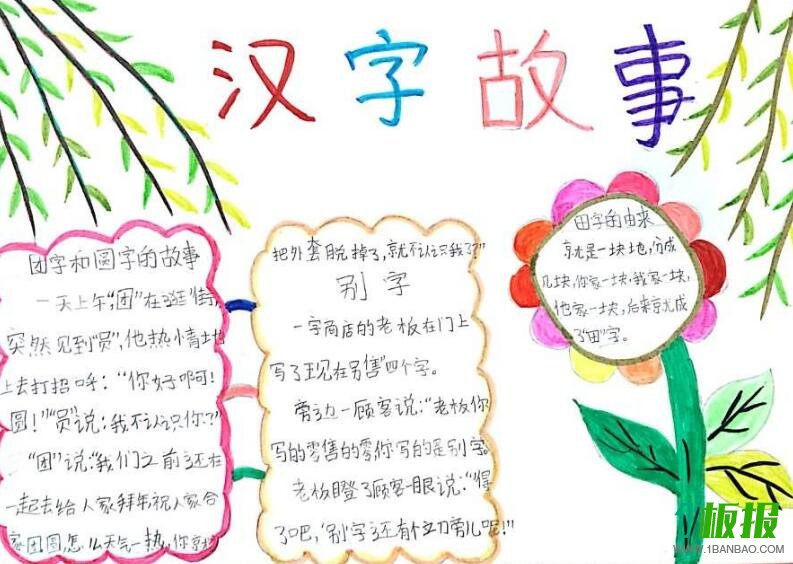 汉字故事
团字和圆字的故事
一天上午,"团"在逛街,
突然见到"员",他热情地
上去打招呼:"你好啊!
圆!""员"说:"我不认识你?"
"团"说:"我们之前还在
一起去给人家拜年,祝人家合
家团圆,怎么天气一热,你就
把外套脱掉了,就不认识我了?"
别字
一字商店的老板在门上
写了"现在另售"四个字。
旁边一顾客说:"老板你
写的零售的零你写的是别字。
老板瞪了顾客一眼说:"得
了吧,'别'字还有个立刀旁儿呢!"
田字的由来
就是一块地,分成
几块,你家一块,我家一块,
他家一块,后来就成
了"田"字。
板报
WWW.1BANBAO.COM